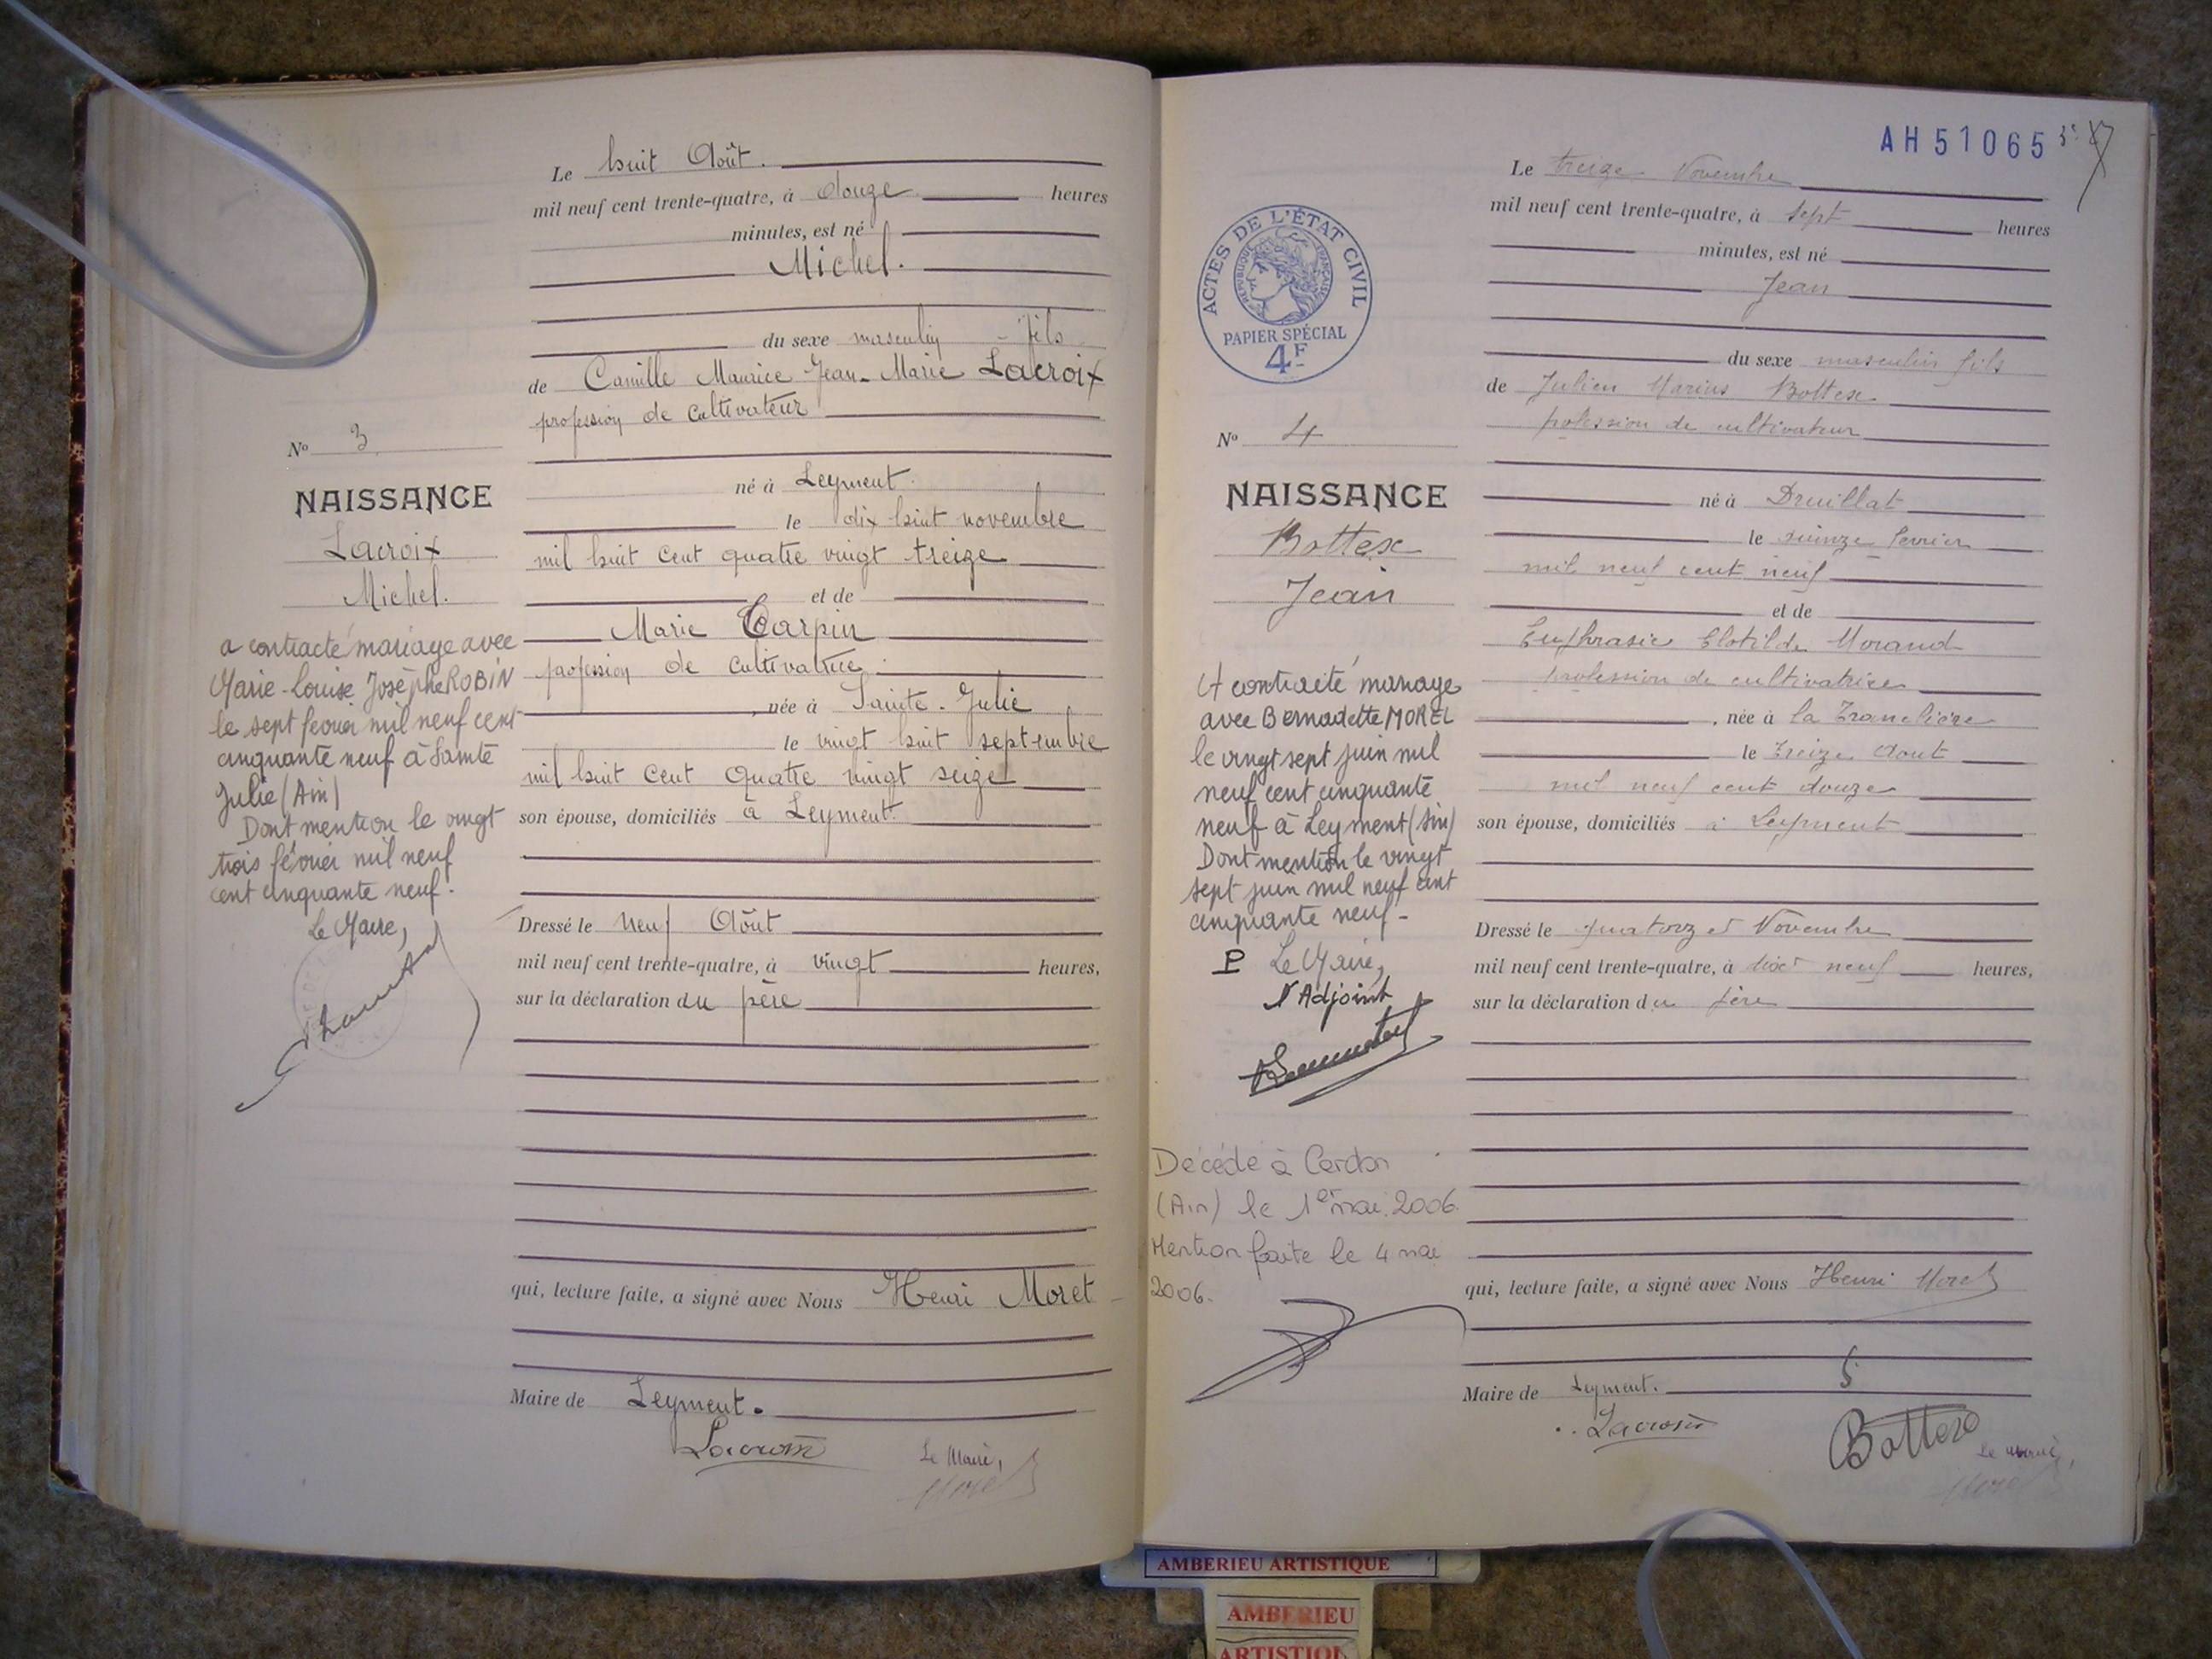 Le huit Août.
mil neuf cent trente-quatre, à douze heures
minutes, est né
Michel.
du sexe masculin - fils
de Camille Maurice Jean-Marie Lacroix
profession de cultivateur
né à Leyment.
le dix huit novembre
mil huit cent quatre vingt treize
et de
Marie Carpin
profession de cultivatrice
, née à Sainte-Julie
le vingt huit septembre
mil huit cent quatre vingt seize
son épouse, domiciliés à Leyment.
Dressé le neuf Août
mil neuf cent trente-quatre, à vingt heures,
sur la déclaration du père
qui, lecture faite, a signé avec Nous Henri Moret
Maire de Leyment.
Lacroix
Le Maire,
Moret
No 3.
NAISSANCE
Lacroix
Michel.
a contracté mariage avec
Marie-Louise Josèphe ROBIN
le sept février mil neuf cent
cinquante neuf à Sainte
Julie (Ain)
Dont mention le vingt
trois février mil neuf
cent cinquante neuf.
Le Maire,
AH51065
ACTES DE L'ÉTAT CIVIL
RÉPUBLIQUE FRANÇAISE
PAPIER SPÉCIAL
4F
Le treize Novembre
mil neuf cent trente-quatre, à sept heures
minutes, est né
Jean
du sexe masculin fils
de Julien Marius Bottex
profession de cultivateur
né à Druillat
le quinze février
mil neuf cent neuf
et de
Euphrasie Clotilde Morand
profession de cultivatrice
, née à la Tranclière
le treize Aout
mil neuf cent douze
son épouse, domiciliés à Leyment
Dressé le quatorze Novembre
mil neuf cent trente-quatre, à dix neuf heures,
sur la déclaration du père
qui, lecture faite, a signé avec Nous Henri Moret
Maire de Leyment.
Lacroix
Bottex
Le maire,
Moret
No 4
NAISSANCE
Bottex
Jean
A contracté mariage
avec Bernadette MOREL
le vingt sept juin mil
neuf cent cinquante
neuf à Leyment (Ain)
Dont mention le vingt
sept juin mil neuf cent
cinquante neuf-
P Le Maire,
l'Adjoint
Décédé à Cerdon
(Ain) le 1er mai 2006.
Mention faite le 4 mai
2006.
AMBERIEU ARTISTIQUE
AMBERIEU